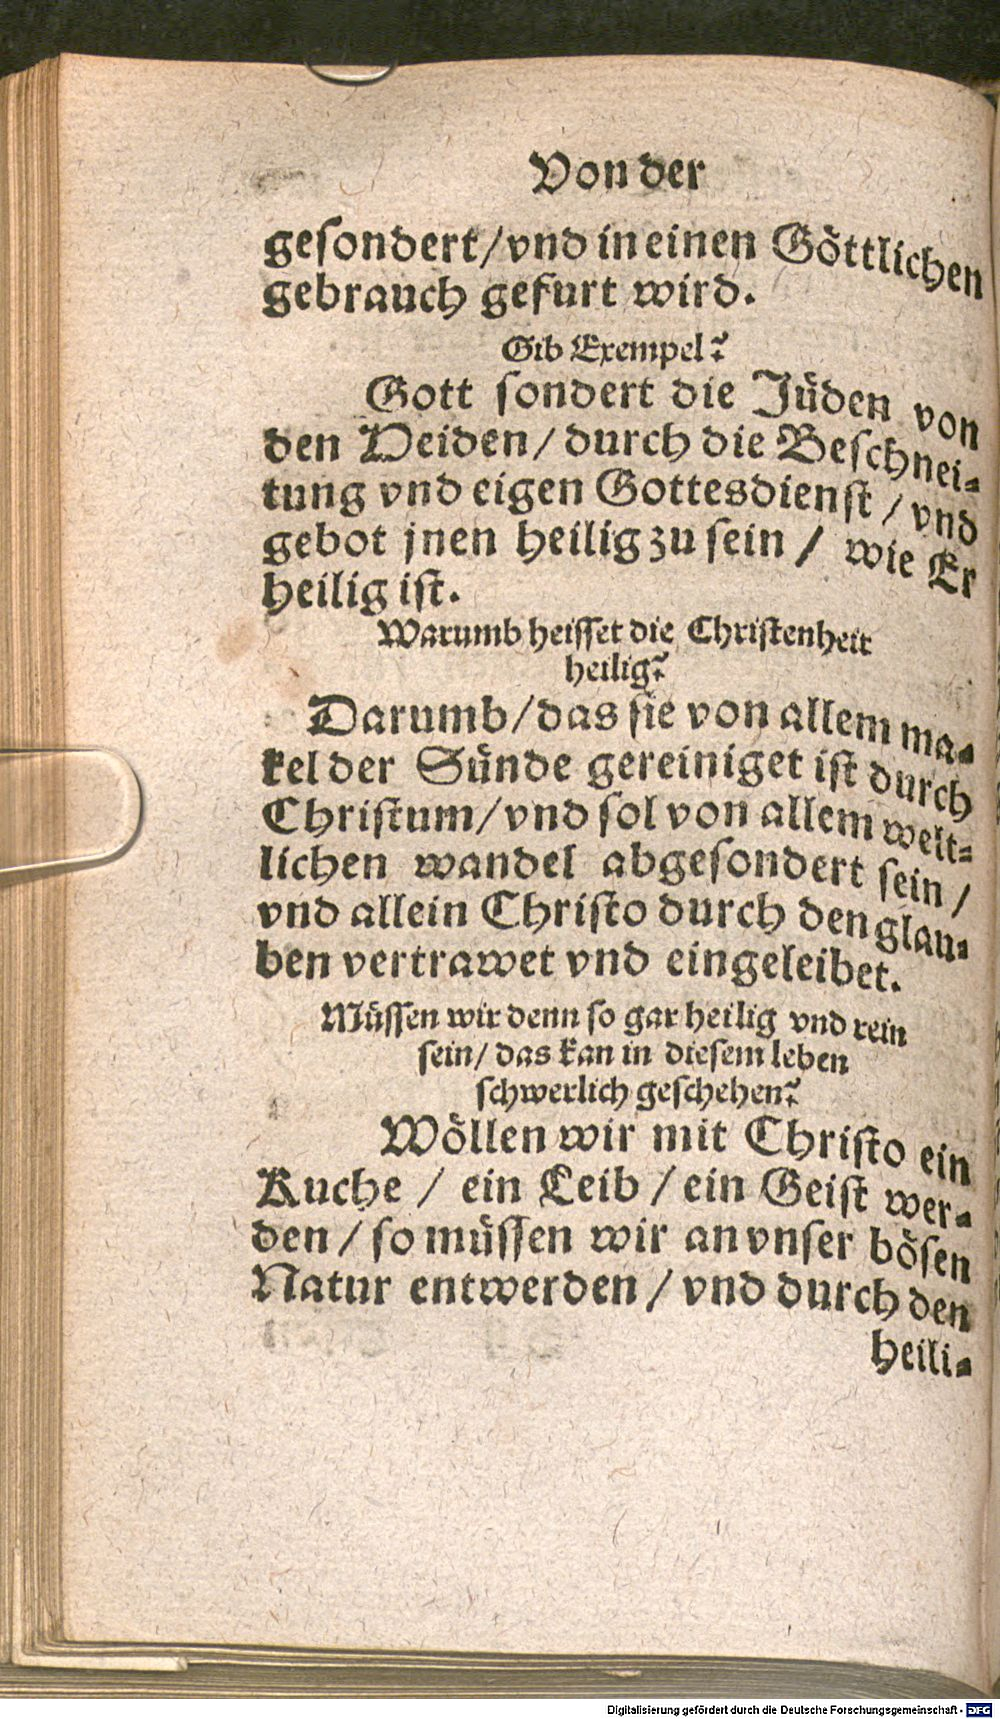 Von der
gesondert/vnd in einen Göttlichen
gebrauch gefurt wird.
Gib Exempel?
Gott sondert die Jüden von
den Heiden/ durch die Beschnei-
tung vnd eigen Gottesdienst / vnd
gebot jnen heilig zu sein / wie Er
heilig ist.
Warumb heisset die Christenheit
heilig?
Darumb/das sie von allem ma-
kel der Sünde gereiniget ist durch
Christum/vnd sol von allem welt-
lichen wandel abgesondert sein /
vnd allein Christo durch den glau-
ben vertrawet vnd eingeleibet.
Müssen wir denn so gar heilig vnd rein
sein/ das kan in diesem leben
schwerlich geschehen?
Wöllen wir mit Christo ein
Kuche / ein Leib / ein Geist wer-
den / so müssen wir an vnser bösen
Natur entwerden / vnd durch den
heili-
Digitalisierung gefördert durch die Deutsche Forschungsgemeinschaft - DFG